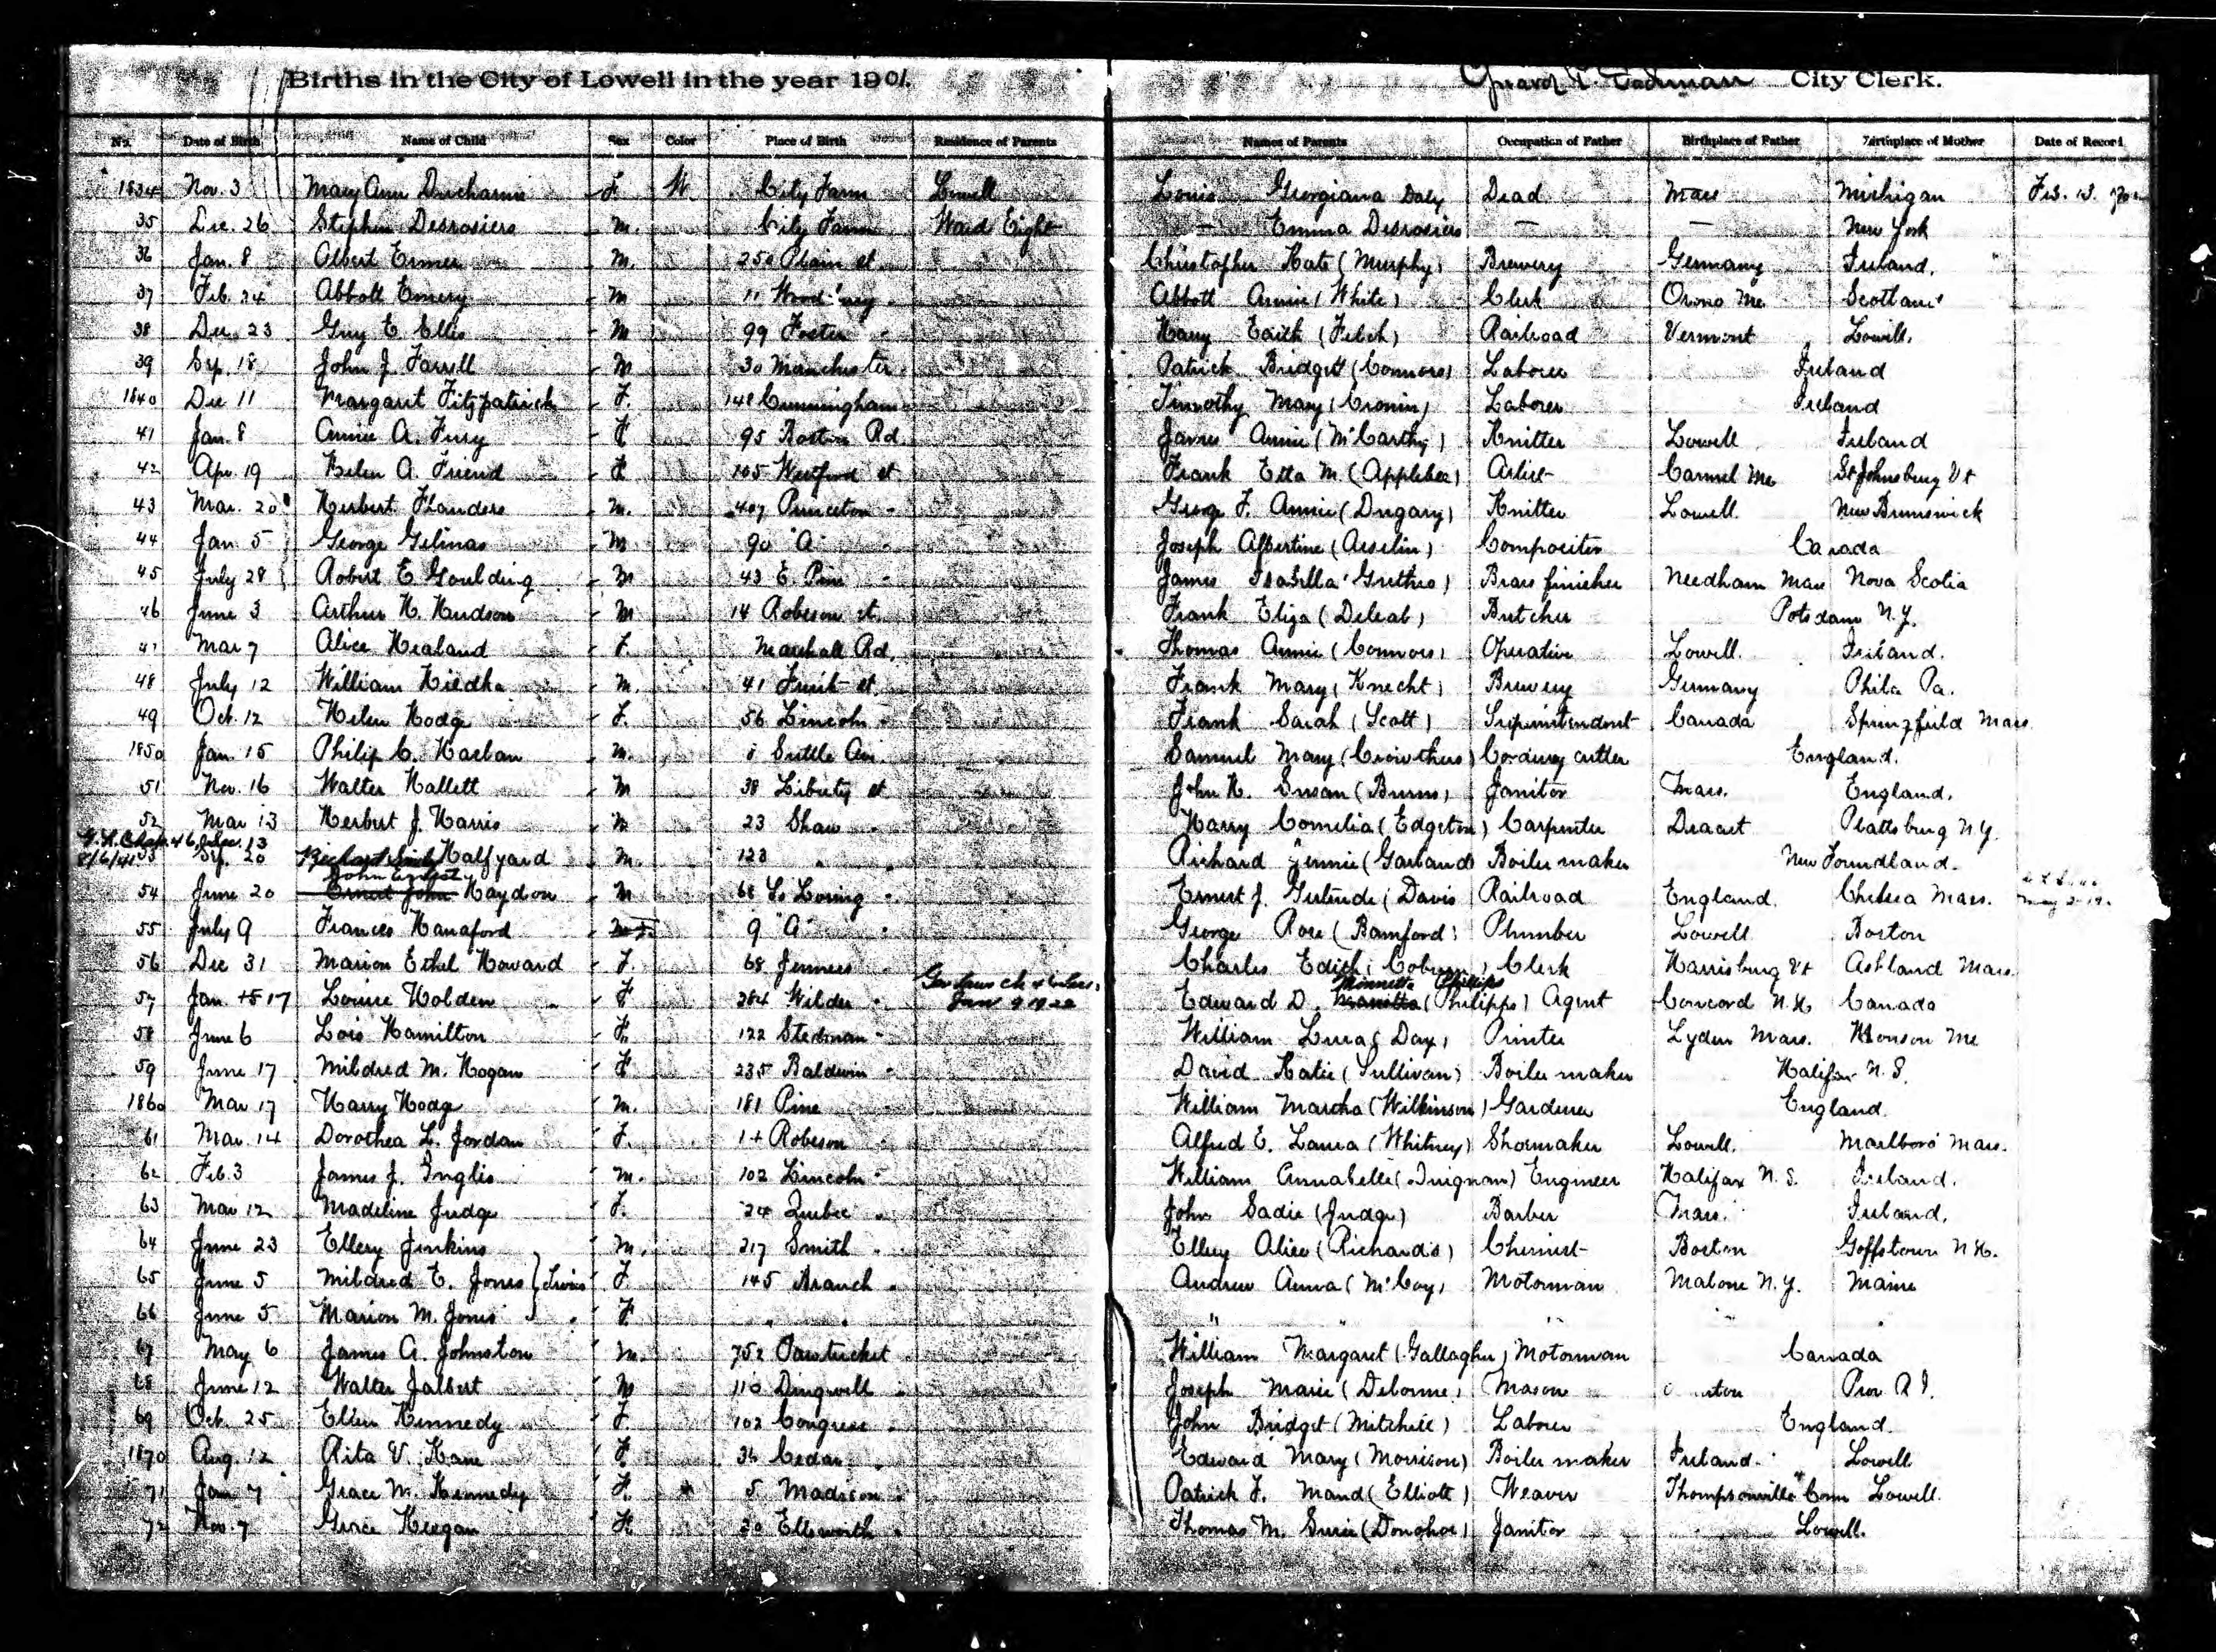 Births in the City of Lowell in the year 1901. City Clerk.
No. Date of Birth Name of Child Sex Color Place of Birth Residence of Parents Names of Parents Occupation of Father Birthplace of Father Birthplace of Mother Date of Record
1834 Nov. 3 Mary Ann Ducharme F. W. City Farm Lowell Louis Georgiana Daly Dead Mass Michigan Feb. 13.
35 Dec. 26 Stephen Desrosiers M. City Farm Ward Eight — Emma Desrosiers — — New York
36 Jan. 8 Albert Ermer M. 250 Plain st Christopher Kate (Murphy) Brewery Germany Ireland.
37 Feb. 24 Abbott Emery M 11 Abbott Annie (White) Clerk Orono Me. Scotland
38 Dec. 23 Guy E. Ellis M 99 Foster " Harry Edith (Felch) Railroad Vermont Lowell.
39 Sep. 18 John J. Farrell M 30 Manchester Patrick Bridget (Connors) Laborer Ireland
1840 Dec 11 Margaret Fitzpatrick F. 148 Cunningham Timothy Mary (Cronin) Laborer Ireland
41 Jan. 8 Annie A. Fury F 95 Boston Rd. James Annie (McCarthy) Knitter Lowell Ireland
42 Apr. 19 Helen A. Friend F. 105 Westford st Frank Etta M. (Applebee) Artist Carmel Me St Johnsbury Vt
43 Mar. 20 Herbert Flanders M. 407 Princeton " George F. Annie (Dugary) Knitter Lowell. New Brunswick
44 Jan. 5 George Gelinas M 90 "A" Joseph Albertine (Asselin) Compositor Canada
45 July 28 Robert E. Goulding M 43 E. Pine " James Isabella Brass finisher Needham Mass Nova Scotia
46 June 3 Arthur H. Hudson M 14 Robeson st. Frank Eliza Butcher Potsdam N.Y.
47 Mar 7 Alice Healand F. Marshall Rd. Thomas Annie (Connors) Operative Lowell. Ireland.
48 July 12 William Hiedka M. 41 Fruit st. Frank Mary (Knecht) Brewery Germany Phila Pa.
49 Oct. 12 Helen Hodge F. 56 Lincoln " Frank Sarah (Scott) Superintendent Canada Springfield Mass
1850 Jan. 15 Philip C. M. Suttle Av. Samuel Mary (Crowthers) Corduroy cutter England.
51 Nov. 16 Walter Hallett M 38 Liberty st John H. Susan (Burns) Janitor Mass. England.
52 Mar 13 Herbert J. Harris M 23 Shaw " Harry Cornelia (Edgeton) Carpenter Dracut Plattsburg N.Y.
G.L. Chap. 46, Sec. 13
8/6/41 53 Sep. 20 Halfyard M. 123 " " Richard Jennie (Garland) Boiler maker New Foundland.
John
54 June 20 Ernest John Haydon M 68 So Loring " Ernest J. Gertrude (Davis Railroad England. Chelsea Mass.
55 July 9 Frances Hanaford 9 "A" " George Rose (Bamford) Plumber Lowell Boston
56 Dec 31 Marion Ethel Howard F. 68 Jenness " Charles Edith (Coburn) Clerk Harrisburg Vt Ashland Mass.
Minnetta Phillips
57 Jan. 15 17 Louise Holden " F 284 Wilder " Edward D. (Philipps) Agent Concord N.H. Canada
58 June 6 Lois Hamilton F. 122 Stedman " William Lura (Day) Printer Lyden Mass. Monson Me
59 June 17 Mildred M. Hogan F 235 Baldwin " David Katie (Sullivan) Boiler maker Halifax N.S.
1860 Mar 17 Harry Hodge M. 181 Pine William Martha (Wilkinson) Gardener England.
61 Mar. 14 Dorothea L. Jordan F. 14 Robeson " Alfred E. Laura (Whitney) Shoemaker Lowell. Marlboro Mass.
62 Feb. 3 James J. Inglis M. 102 Lincoln " William Annabelle (Duignam) Engineer Halifax N.S. Ireland.
63 Mar 12 Madeline Judge F. 24 Quebec " John Sadie (Judge) Barber Mass. Ireland.
64 June 23 Ellery Jenkins M. 217 Smith " Ellery Alice (Richards) Chemist Boston Goffstown N.H.
65 June 5 Mildred E. Jones } Twins F. 145 Branch " Andrew Anna (McCoy) Motorman Malone N.Y. Maine
66 June 5 Marion M. Jones } " F. " " " " " " "
67 May 6 James A. Johnston M. 752 Pawtucket William Margaret (Gallagher) Motorman Canada
68 June 12 Walter Jalbert M 110 Dingwell " Joseph Marie (Delorme) Mason Prov R I.
69 Oct. 25 Ellen Kennedy F. 102 Congress " John Bridget (Mitchell) Laborer England.
1870 Aug. 12 Rita V. Kane F. 36 Cedar " Edward Mary (Morrison) Boiler maker Ireland. Lowell
71 Jan 7 Grace M. Kennedy F. 5 Madison " Patrick F. Maud (Elliott) Weaver Thompsonville Conn Lowell.
72 Nov. 7 Grace Keegan F. 20 Ellsworth " Thomas M. Susie (Donohoe) Janitor Lowell.